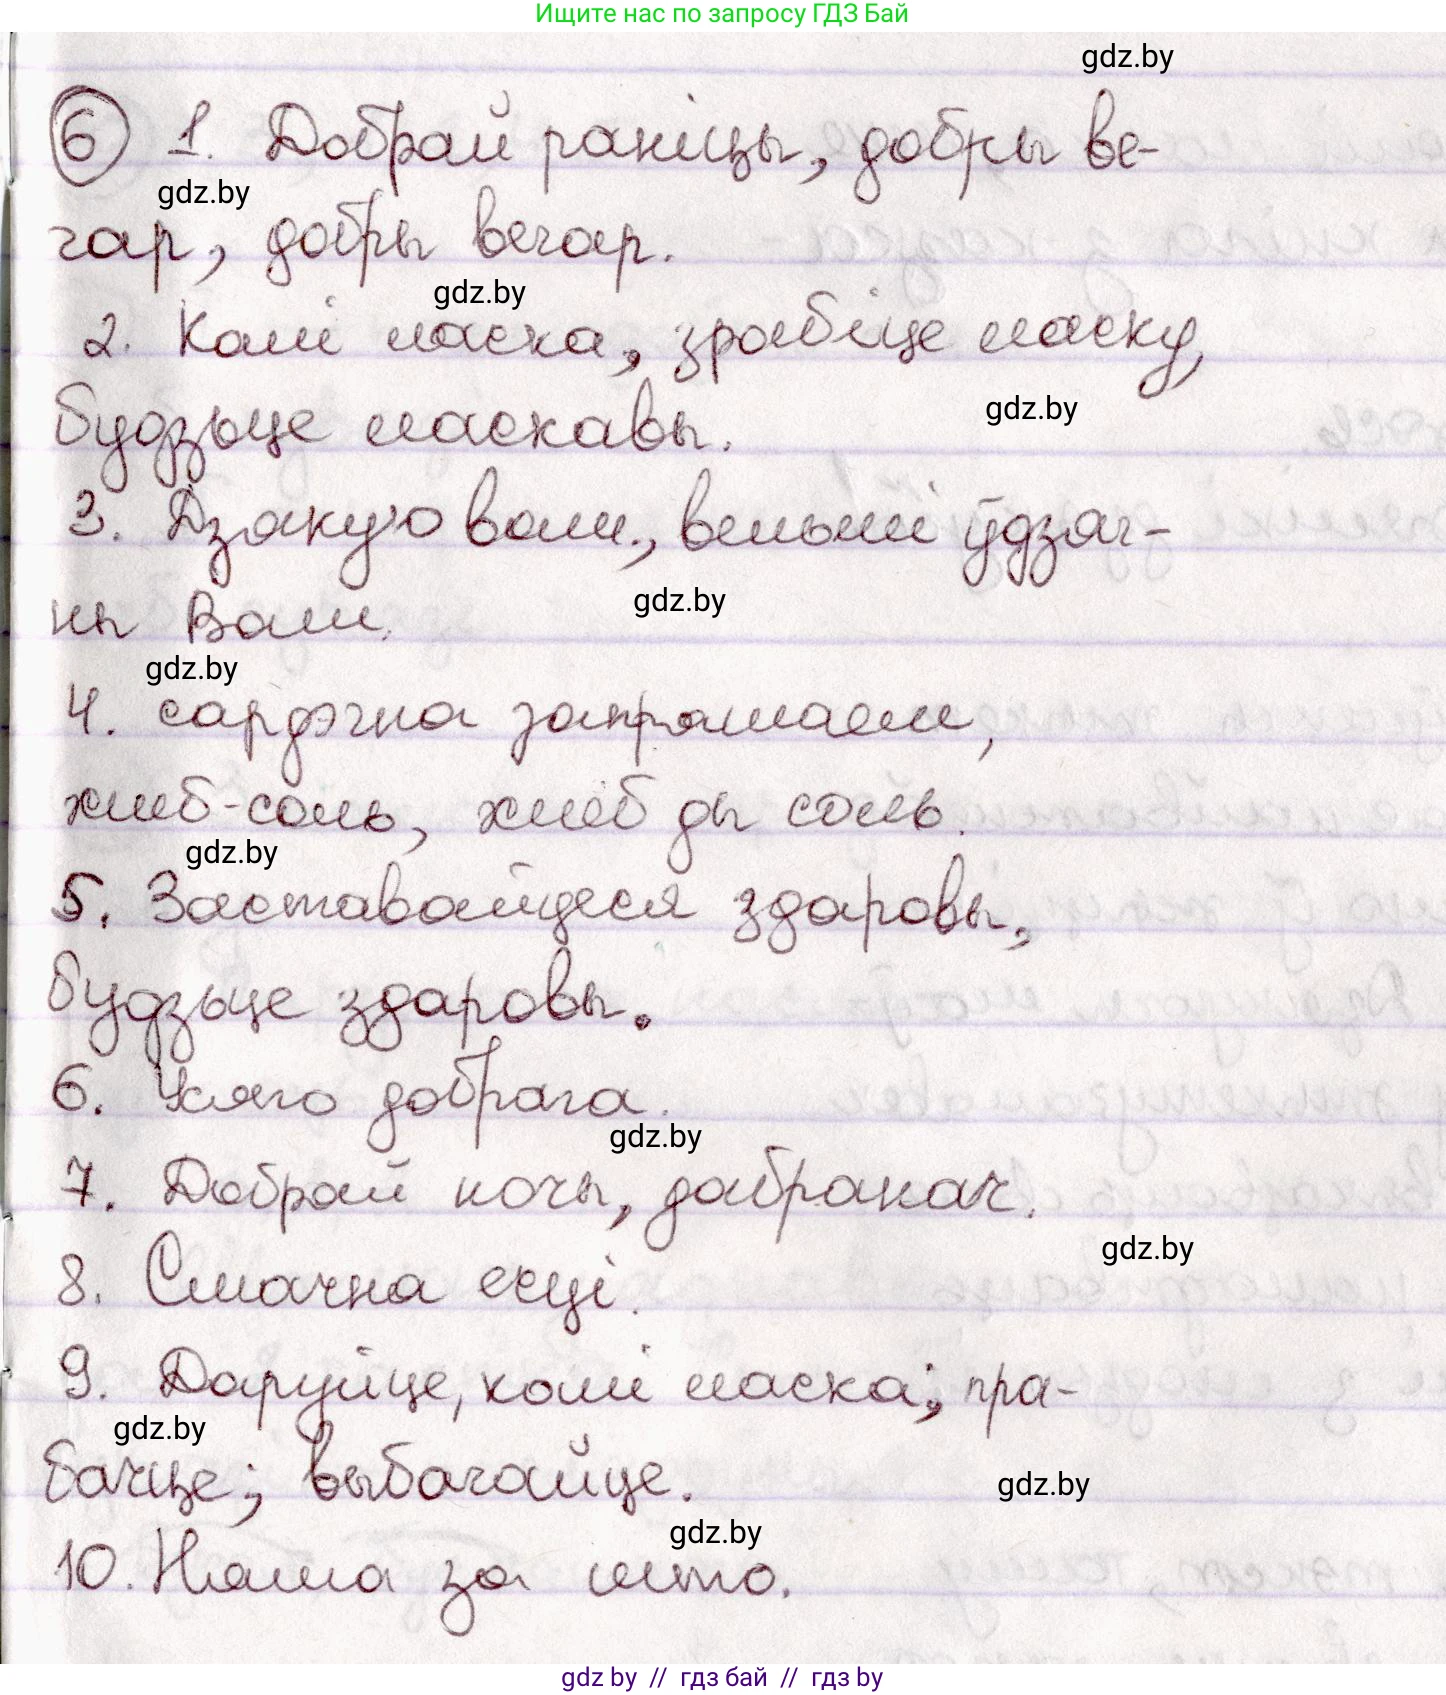 Ищите нас по запросу ГДЗ Бай
gdz.by
6 1. Добрай раніцы, добры ве-
gdz.by
чар, добры вечар.
gdz.by
2. Калі ласка, зрабіце ласку,
gdz.by
будзьце ласкавы.
3. Дзякую вам, вельмі ўдзяч-
gdz.by
ны Вам.
gdz.by
4. сардэчна запрашаем,
хлеб-соль, хлеб ды соль.
gdz.by
5. Заставайцеся здаровы,
будзьце здаровы.
6. Усяго добрага.
gdz.by
7. Добрай ночы, дабранач.
gdz.by
8. Смачна есці.
9. Даруйце, калі ласка; пра-
gdz.by
бачце; выбачайце.
gdz.by
gdz.by
10. Няма за што.
gdz by // гдз бай // гдз by